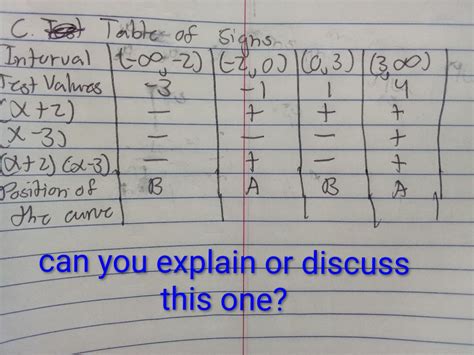 C. Table of Signs
Interval (-∞,-2) (-2,0) (0,3) (3,∞)
Test Values -3 -1 1 4
(x+2) − + + +
(x-3) − − − +
(x+2)(x-3) − + − +
Position of B A B A
the curve
can you explain or discuss
this one?